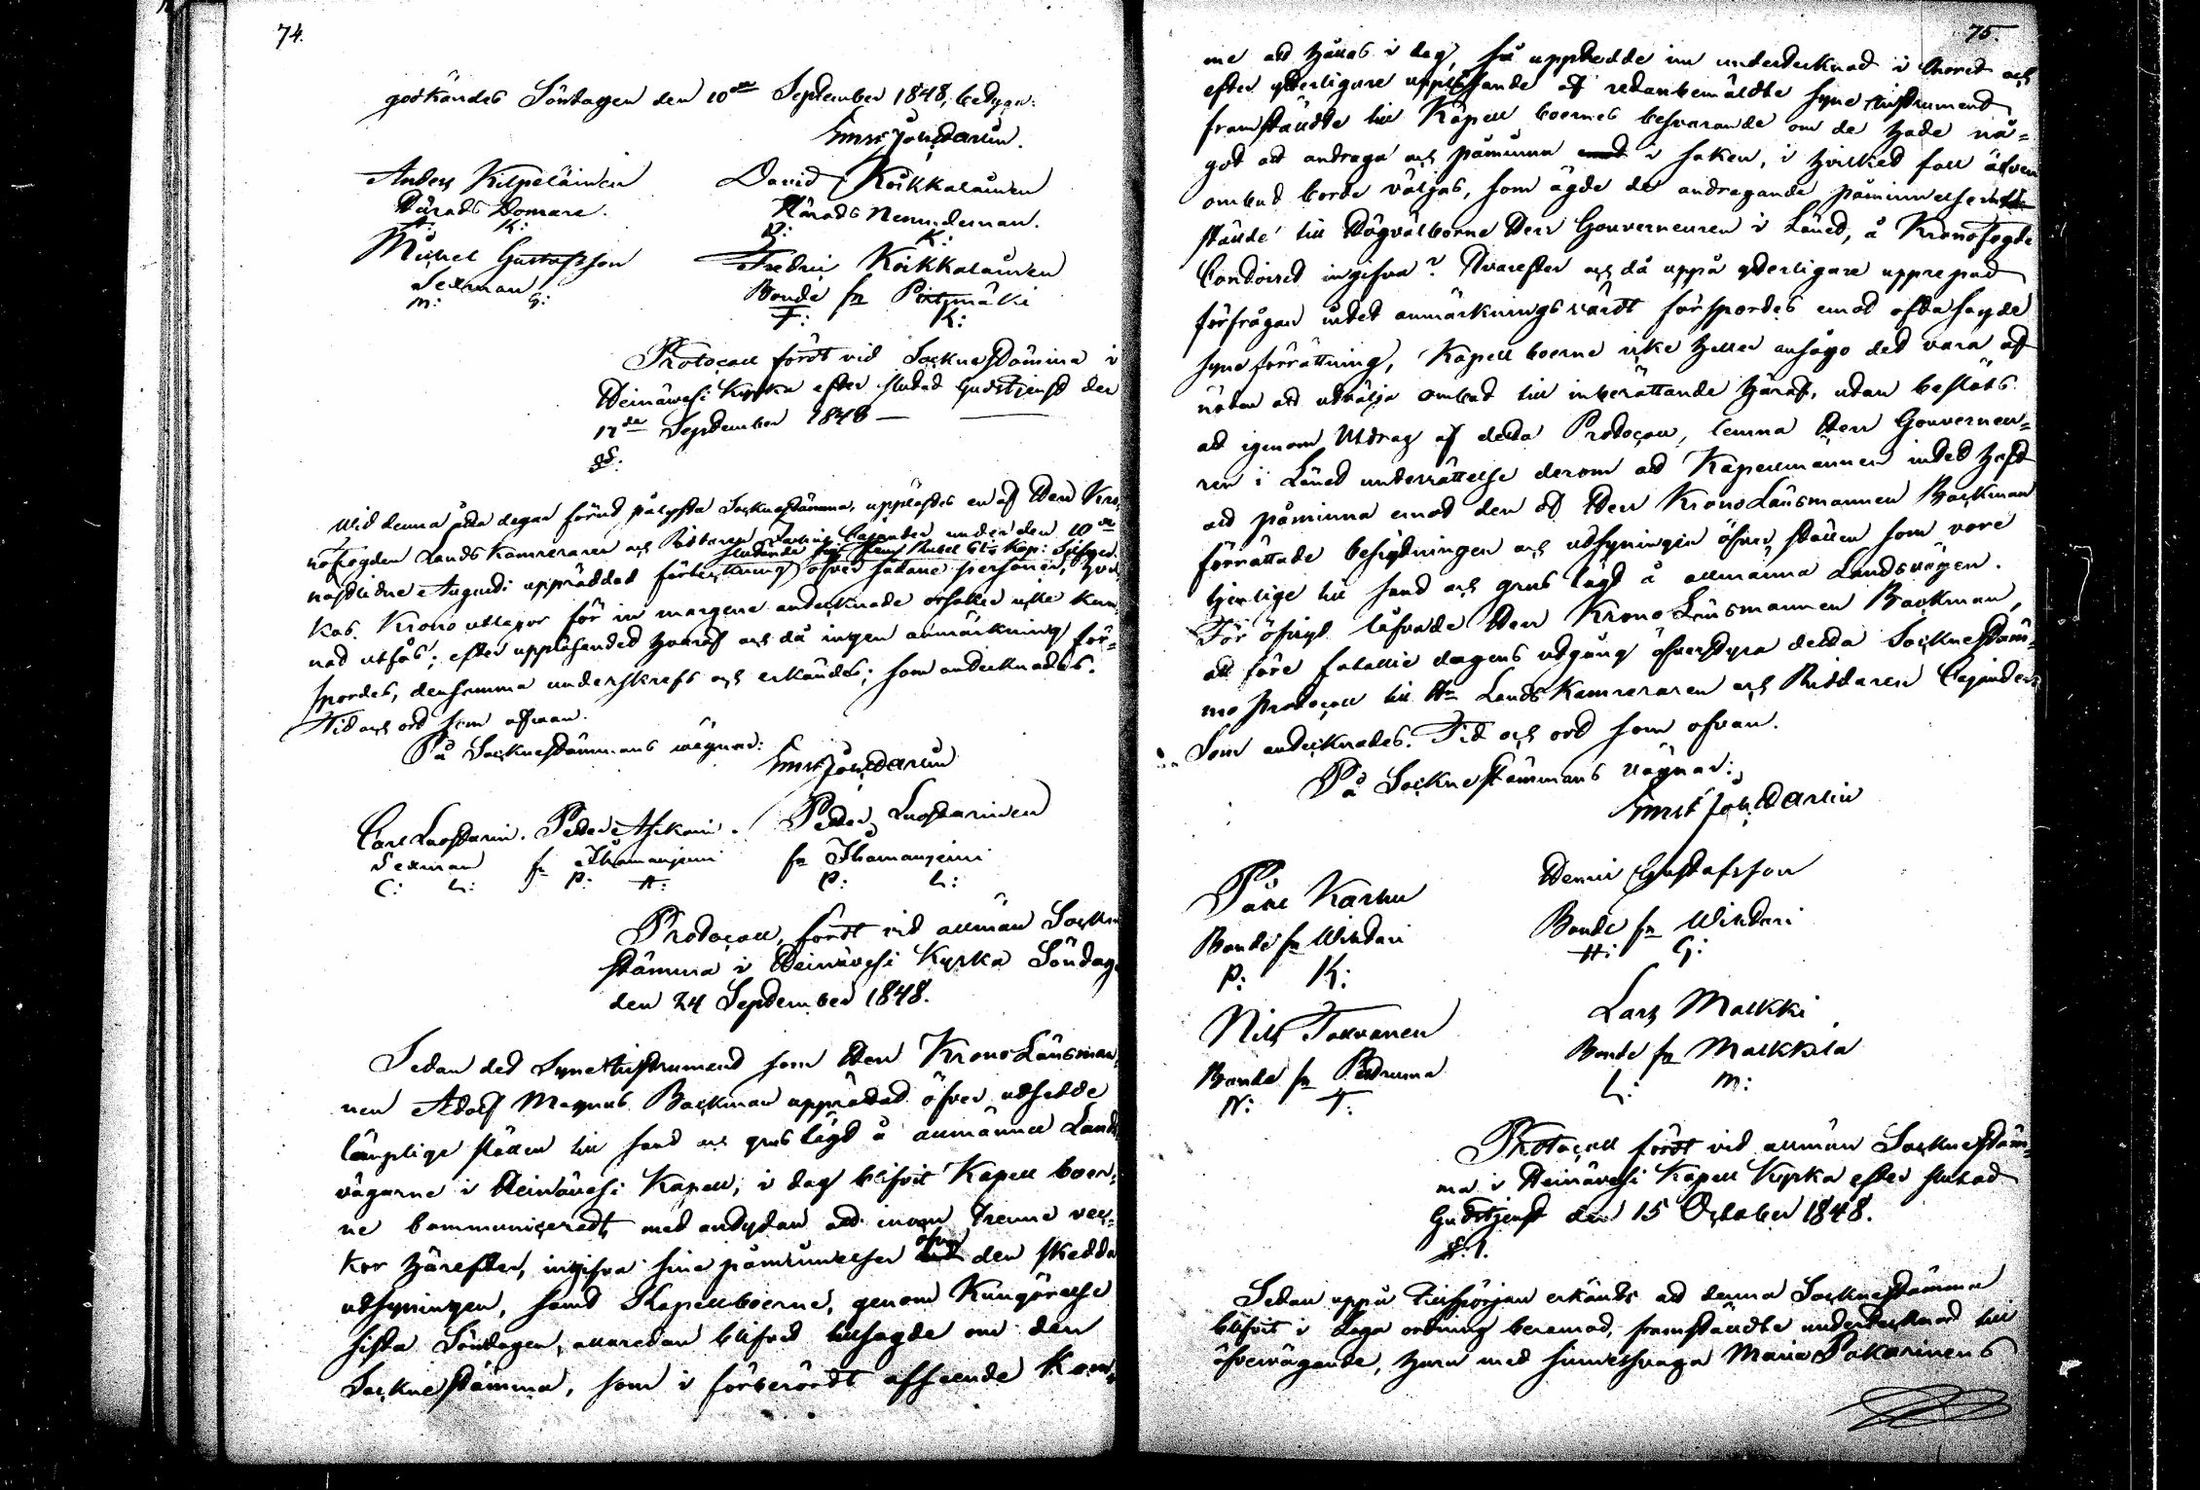 74.
godkändes Söndagen den 10de September 1848, betygar:
Ernst Joh: Darlin.
Anders Kilpeläinen David Koikkalainen
Härads Domare. Härads Nemndeman.
A: K: D: K:
Michel Gustafsson Fredric Koikkalainen
Sexman Bonde fr
M: G: F: K:
Protocoll fördt vid Socknestämma i
Heinävesi Kyrka efter slutad Gudstjenst den
17de September 1848 —
§1.
Wid denna åtta dagar förut pålysta Socknestämma, upplästes en af Herr Kro-
nofogden LandsKamreraren och Riddaren Cajander under den 10de
nästledne Augusti upprättad förteckning öfver sådane personer, hvil-
kas Krono utlagor för in margine antecknade orsaker icke kun-
nat utfås; efter uppläsandet hvaraf och då ingen anmärkning för-
spordes, densamma underskrefs och erkändes; som antecknades.
Tid och ort som ofvan.
På Socknestämmans vägnar:
Ernst Joh: Darlin
Carl Luostarin. Petter Asikain. Petter Luostarinen
Sexman fr Ihamaniemi fr Ihamaniemi
C: L: P: A: P: L:
Protocoll, fördt vid allmän Sockne
stämma i Heinävesi Kyrka Söndagen
den 24 September 1848.
Sedan det Syne Instrument som Herr KronoLänsman-
nen Adolf Magnus Backman upprättat öfver utsedde
lämplige ställen till sand och grustägt å allmänna Lands
vägarne i Heinävesi Kapell, i dag blifvit Kapellboer-
ne communiceradt med antydan att inom trenne vec-
kor härefter, ingifva sine påminnelser öfver den skedda
utsyningen, samt Kapellboerne, genom Kungörelse
sista Söndagen, allaredan blifvit tillsagde om den
Socknestämma, som i förberördt afseende kom-
75.
me att hållas i dag, så uppträdde nu undertecknad i Choret och
efter ytterligare uppläsande af redanbemäldte Syne Instrument
framställdte till Kapellboernes besvarande om de hade nå-
got att andraga och påminna i saken, i hvilket fall äfven
ombud borde väljas, som ägde de andragande påminnelserne
till Högvälborne Herr Gouverneuren i Länet, å Kronofogde
Contoiret ingifva? Hvarefter och då uppå ytterligare upprepad
förfrågan intet anmärkningsvärdt förspordes emot oftasagde
syneförrättning, Kapellboerne icke heller ansågo det vara af
nöden att utvälja ombud till inberättande häraf, utan beslöts
att igenom Utdrag af detta Protocoll, lemna Herr Gouverneu-
ren i Länet underrättelse derom att Kapellmännen intet haft
att påminna emot den af Herr KronoLänsmannen Backman
förrättade besigtningen och utsyningen öfver ställen som vore
tjenlige till sand och grus tägt å allmänna Landsvägen.
För öfrigt låfvade Herr KronoLänsmannen Backman,
att före fatalie dagens utgång öfverstyra detta Socknestäm-
mo Protocoll till Hr LandsKamreraren och Riddaren Cajander;
Som antecknades. Tid och ort som ofvan.
På Socknestämmans vägnar:
Ernst Joh: Darlin
Påhl Karhu Henric Gustafsson
Bonde fr Wihtari Bonde fr Wihtari
P: K: H: G:
Nils Tarvanen Lars Malkki
Bonde fr Petruma Bonde fr Malkkila
N: T: L: M:
Protocoll fördt vid allmän Socknestäm-
ma i Heinävesi Kapell Kyrka efter slutad
Gudstjenst den 15 October 1848.
§.1.
Sedan uppå tillspörjan erkändts att denna Socknestämma
blifvit i laga ordning beramad, framställdte undertecknad till
öfvervägande, huru med sinnessvaga Maria Pakarinens